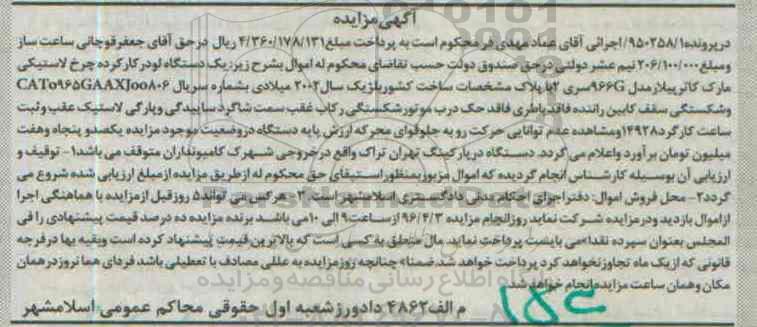 آگهی مزایده
درپرونده۹۵۰۲۵۸/۱/اجرائی آقای عماد مهدی فر محکوم است به پرداخت مبلغ۴/۳۶۰/۱۷۸/۱۳۱ ریال درحق آقای جعفرقوچانی ساعت ساز
ومبلغ ۲۰۶/۱۰۰/۰۰۰ نیم عشر دولتی درحق صندوق دولت حسب تقاضای محکوم له اموال بشرح زیر: یک دستگاه لودر کارکرده چرخ لاستیکی
مارک کاترپیلار مدل ۹۶۶G سری ۲ با پلاک مشخصات ساخت کشوربلژیک سال۲۰۰۲ میلادی بشماره سریال CAT۰۹۶۵GAAXJ۰۰۸۰۶
وشکستگی سقف کابین راننده فاقدباطری فاقد جک درب موتورشکستگی رکاب عقب سمت شاگرد ساییدگی وپارگی لاستیک عقب وثبت
ساعت کارکرد۱۴۹۲۸ومشاهده عدم توانایی حرکت رو به جلوقوای محرکه ارزش پایه دستگاه دروضعیت موجود مزایده یکصدو پنجاه وهفت
میلیون تومان برآورد واعلام می گردد. دستگاه درپارکینگ تهران تراک واقع درخروجی شهرک کامیونداران متوقف می باشد۱- توقیف و
ارزیابی آن بوسیله کارشناس انجام گردیده که اموال مزبوربمنظوراستیفای حق محکوم له ازطریق مزایده ازمبلغ ارزیابی شده شروع می
گردد۲- محل فروش اموال: دفتراجرای احکام مدنی دادگستری اسلامشهر است. ۳- هرکس می تواند۵ روزقبل ازمزایده با هماهنگی اجرا
ازاموال بازدید ودرمزایده شرکت نماید روزانجام مزایده ۹۶/۴/۳ ازساعت۹ الی ۱۰می باشد برنده مزایده ده درصد قیمت پیشنهادی را فی
المجلس بعنوان سپرده نقدا»می بایست پرداخت نماید. مال متعلق به کسی است که بالاترین قیمت پیشنهاد کرده است وبقیه بها درفرجه
قانونی که ازیک ماه تجاوزنخواهد کرد پرداخت خواهد شد.ضمنا» چنانچه روزمزایده به عللی مصادف با تعطیلی باشد فردای همان روزدرهمان
مکان وهمان ساعت مزایده انجام خواهد شد.
م الف۴۸۶۲ دادورزشعبه اول حقوقی محاکم عمومی اسلامشهر